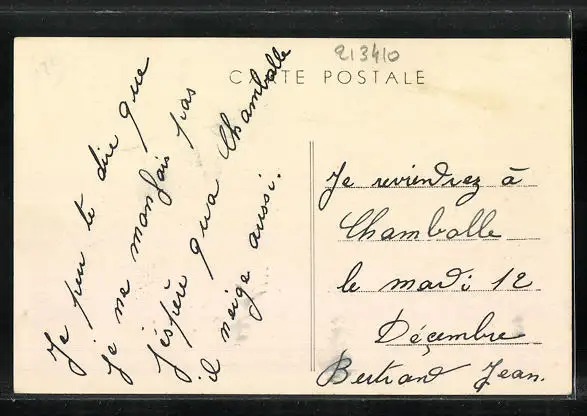 213410
CARTE POSTALE
Je peu te dire que
je ne manfais pas
j'éspère qua Chamballe
il neige aussi.
Je reviendrez à
Chamballe
le mardi 12
Décembre
Bertrand Jean.